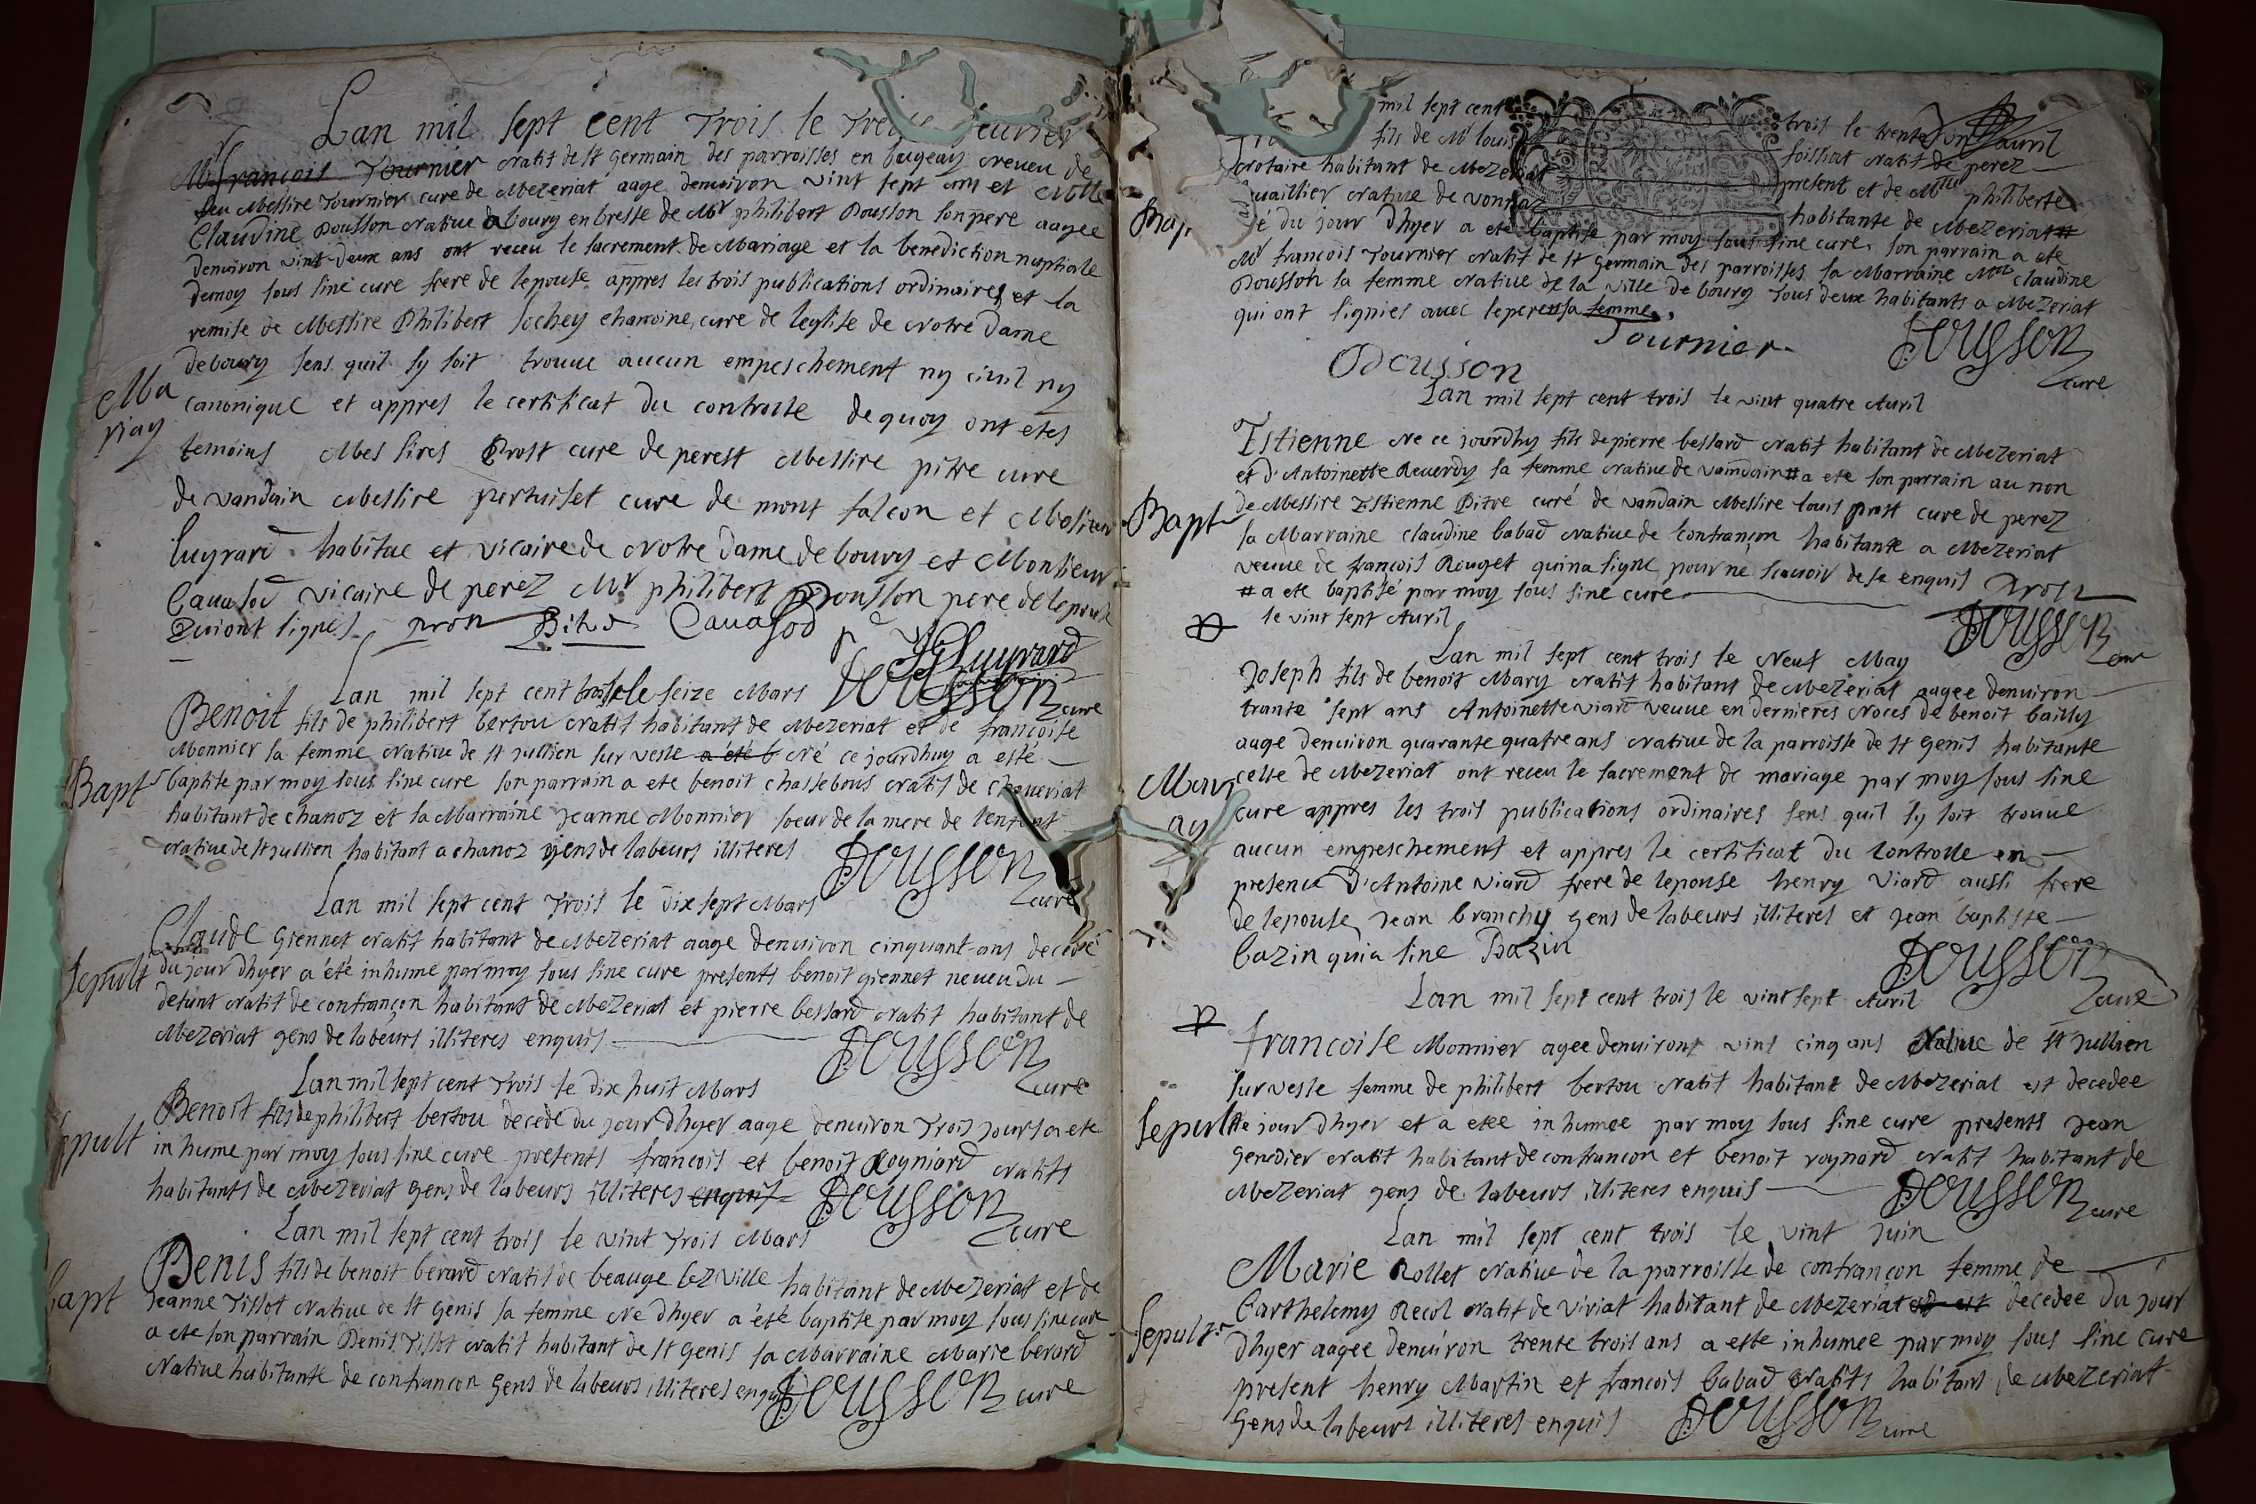 Lan mil sept cent trois le treise feurier
Mr francois Tournier natif de st germain des parroisses en beugeay neueu de
feu Messire Tournier cure de Mezeriat aage denuiron vint sept ans et Mlle
Claudine Dousson natiue de bourg en bresse de Mr philibert Dousson son pere aagee
denuiron vint deux ans ont receu le sacrement de Mariage et la benediction nuptiale
de moy sous sine cure frere de lepouse appres les trois publications ordinaires et la
remise de Messire Philibert Sochey chanoine, cure de leglise de notre Dame
de bourg sens quil sy soit trouue aucun empeschement ny ciuil ny
canonique et appres le certificat du controlle de quoy ont etes
temoins Messires Prost cure de perest Messire pitre cure
de vandain Messire pertuiset cure de mont falcon et Messire
luyrard habitue et vicaire de notre dame de bourg et Monsieur
Cauasod vicaire de perez Mr philibert Dousson pere de lepouse
Qui ont signes prost Pitre Cauasod
Luyrard
Dousson cure
Ma
riag
Lan mil sept cent trois le seize Mars
Benoit fils de philibert bertou natif habitant de Mezeriat et de francoise
Monnier sa femme natiue de st jullien sur vesle a été b né ce jourdhuy a esté
Bapt baptise par moy sous sine cure son parrain a ete benoit chassebous natif de chaueriat
habitant de chanoz et la Marraine jeanne Monnier soeur de la mere de lenfant
natiue de st jullien habitant a chanoz gens de labeurs illiteres
Dousson cure
Lan mil sept cent trois le dix sept Mars
Claude giennet natif habitant de Mezeriat aage denuiron cinquant ans decedé
Sepult du jour dhyer a été inhumé par moy sous sine cure presents benoit giennet neueu du
defunt natif de confrançon habitant de Mezeriat et pierre bessard natif habitant de
Mezeriat gens de labeurs illiteres enquis
Dousson cure
Lan mil sept cent trois le dix huit Mars
Benoit fils de philibert bertou decede du jour dhyer aage denuiron trois jours a ete
Sepult inhume par moy sous sine cure presents francois et benoit Royniard natifs
habitants de Mezeriat gens de labeurs illiteres enquis
Dousson cure
Lan mil sept cent trois le vint trois Mars
Denis fils de benoit berard natif de beauge lez ville habitant de Mezeriat et de
Bapt jeanne Tissot natiue de st genis sa femme ne dhyer a été baptise par moy sous sine cure
a ete son parrain Denis Tissot natif habitant de st genis sa Marraine Marie berard
natiue habitante de confrancon gens de labeurs illiteres enquis
Dousson cure
mil sept cent trois le trente un auril
fils de Mr louis foissiat natif de perez
notaire habitant de Mezeriat present et de Mlle philiberte
uaillier natiue de vonnaz habitante de Mezeriat #
Bap é du jour dhyer a ete baptise par moy sous sine cure son parrain a ete
Mr francois Tournier natif de st germain des parroisses sa Marraine Mlle claudine
Dousson sa femme natiue de la ville de bourg tous deux habitants a Mezeriat
qui ont signies auec le pere # sa femme.
Tournier
Dousson
Dousson cure
Lan mil sept cent trois le vint quatre Auril
Estienne Ne ce jourdhy fils de pierre bessard natif habitant de Mezeriat
et d'Antoinette Reuerdy sa femme natiue de vandain # a ete son parrain au non
de Messire Estienne Pitre curé de vandain Messire louis prost cure de perez
Bapt sa Marraine claudine babad natiue de confrançon habitante a Mezeriat
veuue de françois Rouget qui na signe pour ne scauoir de se enquis Prost
# a ete baptisé par moy sous sine cure
Dousson cure
le vint sept Auril
Lan mil sept cent trois le Neuf May
Joseph fils de benoit Mary natif habitant de Mezeriat aagee denuiron
trante sept ans Antoinette viard veuue en dernieres Noces de benoit bailly
aage denuiron quarante quatre ans natiue de la parroisse de st genis habitante
Mari celle de Mezeriat ont receu le sacrement de mariage par moy sous sine
ag cure appres les trois publications ordinaires sens quil sy soit trouue
aucun empeschement et appres le certificat du controlle en
presence d'Antoine viard frere de lepouse henry viard aussi frere
de lepouse jean branchy gens de labeurs illiteres et jean baptiste
bazin qui a sine Bazin
Dousson cure
Lan mil sept cent trois le vint sept Auril
francoise Monnier agee denuiront vint cinq ans Natiue de st jullien
sur vesle femme de philibert bertou natif habitant de Mezeriat est decedee
Sepult le jour dhyer et a etee inhumee par moy sous sine cure presents jean
genedier natif habitant de confrancon et benoit roynard natif habitant de
Mezeriat gens de labeurs illiteres enquis
Dousson cure
Lan mil sept cent trois le vint Juin
Marie Rollet natiue de la parroisse de confrançon femme de
barthelemy Recol natif de viriat habitant de Mezeriat est decedee du jour
Sepult dhyer aagee denuiron trente trois ans a este inhumee par moy sous sine cure
present henry Martin et francois babad natifs habitant de Mezeriat
gens de labeurs illiteres enquis
Dousson cure